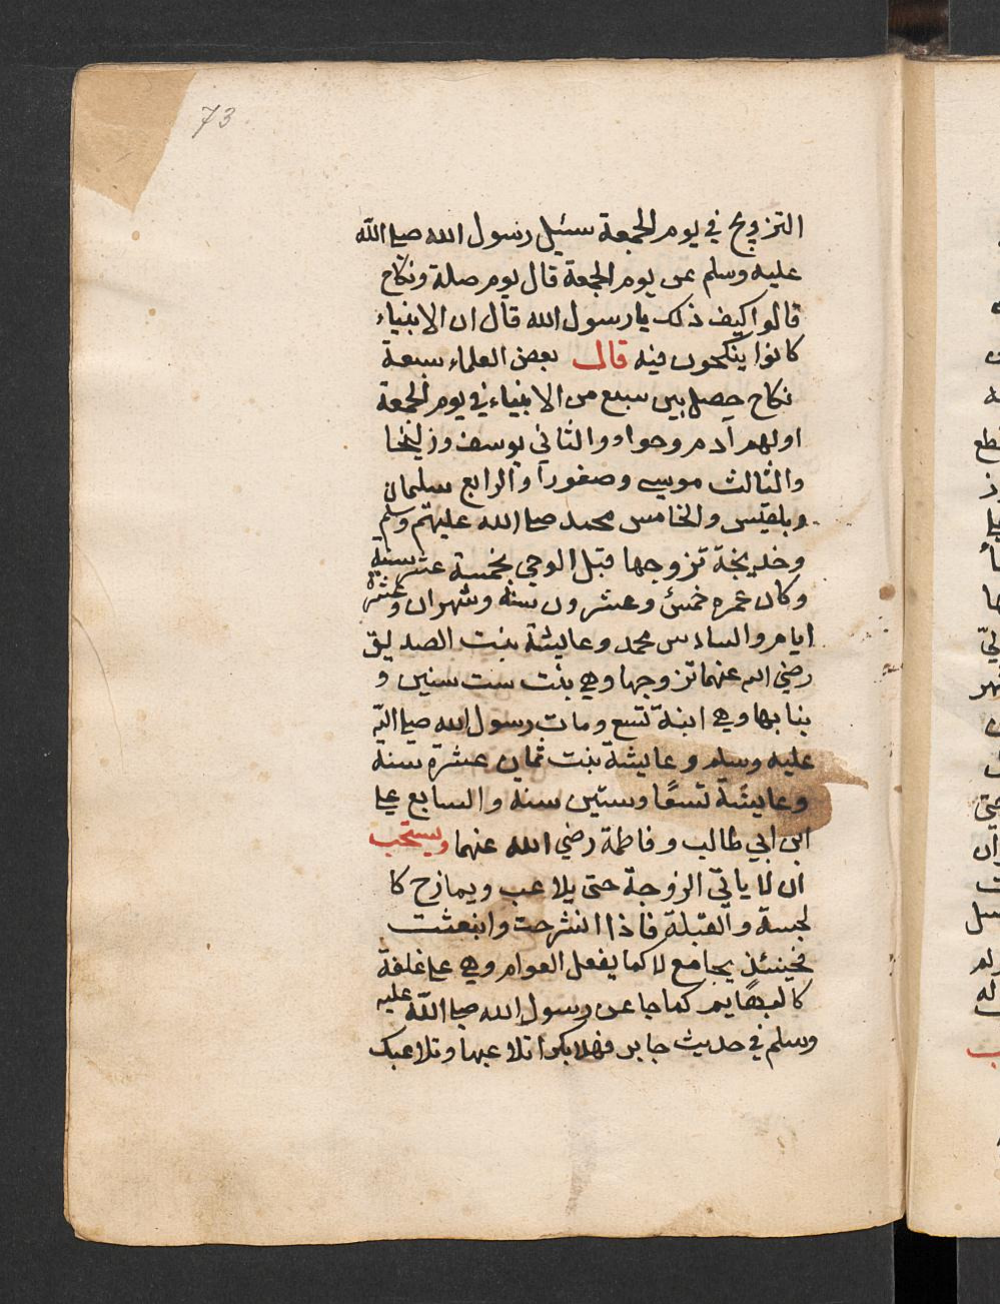 73
التزويج في يوم الجمعة سئيل رسول الله صلى الله
عليه وسلم عن يوم الجمعة قال يوم صلة ونكاح
قالوا كيف ذلك يا رسول الله قال ان الانبياء
كانوا ينكحون فيه قال بعض العلماء سبعة
نكاح حصل بين سبع من الانبياء في يوم الجمعة
اولهم آدم وحواء والثاني يوسف وزليخا
والثالث موسى وصفورا والرابع سليمان
وبلقيس والخامس محمد صلى الله عليهم وسلم
وخديجة تزوجها قبل الوحي بخمسة عشر سنة
وكان عمره خمس وعشرون سنة وشهران وعشرة
ايام والسادس محمد وعايشة بنت الصديق
رضي الله عنهما تزوجها وهي بنت ست سنين و
بنا بها وهي ابنة تسع ومات رسول الله صلى الله
عليه وسلم وعايشة بنت ثمان عشرة سنة
وعايشة تسعًا وستين سنة والسابع علي
ابن ابي طالب وفاطمة رضي الله عنهما ويستحب
ان لا ياتي الزوجة حتى يلاعب ويمازح كا
لجسة والقبلة فاذا انشرحت وانبعثت
فحينئذ يجامع لا كما يفعل العوام وهي على غلفة
كالبهايم كما جا عن رسول الله صلى الله عليه
وسلم في حديث جابر فهلا بكرا تلاعبها وتلاعبك